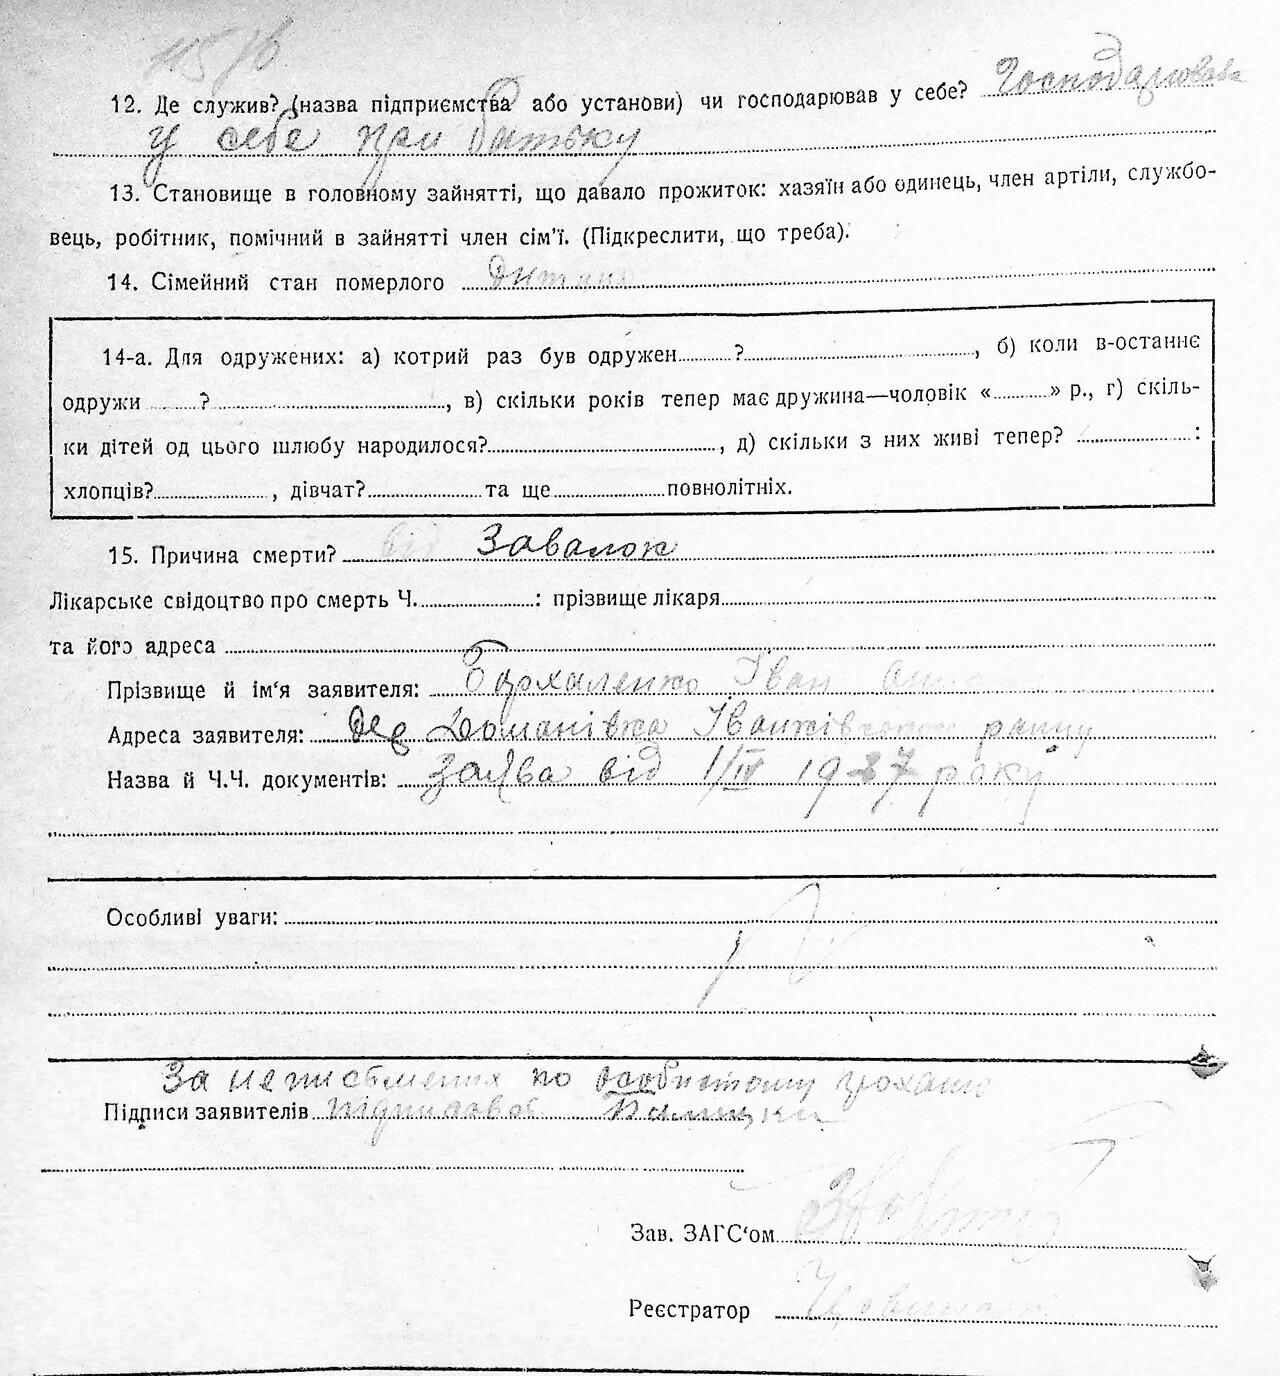 12. Де служив? (назва підприємства або установи) чи господарював у себе? Господарював
у себе при батьку
13. Становище в головному зайнятті, що давало прожиток: хазяїн або одинець, член артілі, службо-
вець, робітник, помічний в зайнятті член сім'ї. (Підкреслити, що треба).
14. Сімейний стан померлого Дитина
14-а. Для одружених: а) котрий раз був одружен ? , б) коли в-останнє
одружи ? , в) скільки років тепер має дружина—чоловік « » р., г) скіль-
ки дітей од цього шлюбу народилося? , д) скільки з них живі тепер? :
хлопців? , дівчат? та ще повнолітніх.
15. Причина смерти? від Завалок
Лікарське свідоцтво про смерть Ч. : прізвище лікаря
та його адреса
Прізвище й ім'я заявителя: Пархаленко Іван
Адреса заявителя: Дер Домановка Іванківського району
Назва й Ч.Ч. документів: Заява від 1/IV 1927 року
Особливі уваги:
За неписьмених по особистому проханю
Підписи заявителів підписавсь
Зав. ЗАГС'ом
Реєстратор